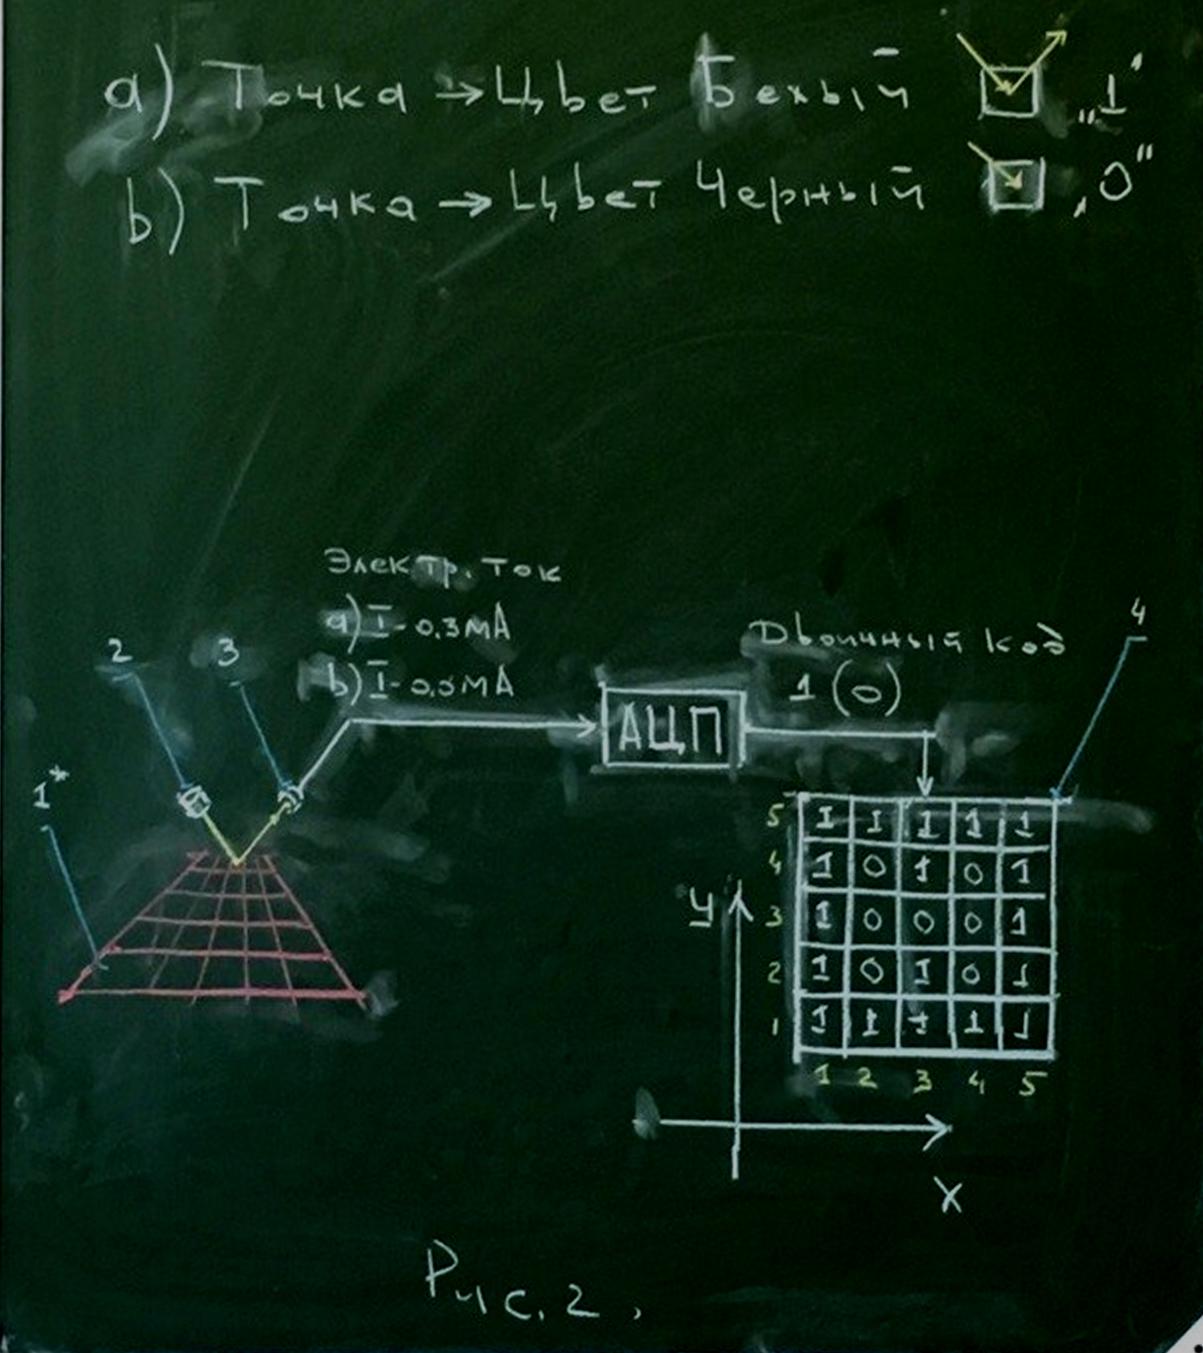 а) Точка → Цвет Белый „1"
b) Точка → Цвет Черный „0"
Электр. ток
а) I - 0.3мА
b) I - 0.0мА
2
3
1*
АЦП
Двоичный код
1 (0)
4
5 1 1 1 1 1
4 1 0 1 0 1
3 1 0 0 0 1
2 1 0 1 0 1
1 1 1 1 1 1
1 2 3 4 5
У
Х
Рис. 2.